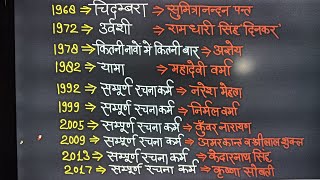 1968 → चिदम्बरा → सुमित्रानन्दन पन्त
1972 → उर्वशी → रामधारी सिंह दिनकर
1978 → कितनी नावों में कितनी बार → अज्ञेय
1982 → यामा → महादेवी वर्मा
1992 → सम्पूर्ण रचनाकर्म → नरेश मेहता
1999 → सम्पूर्ण रचनाकर्म → निर्मल वर्मा
2005 → सम्पूर्ण रचनाकर्म → कुँवर नारायण
2009 → सम्पूर्ण रचनाकर्म → अमरकान्त व श्रीलाल शुक्ल
2013 → सम्पूर्ण रचनाकर्म → केदारनाथ सिंह
2017 → सम्पूर्ण रचनाकर्म → कृष्णा सोबती